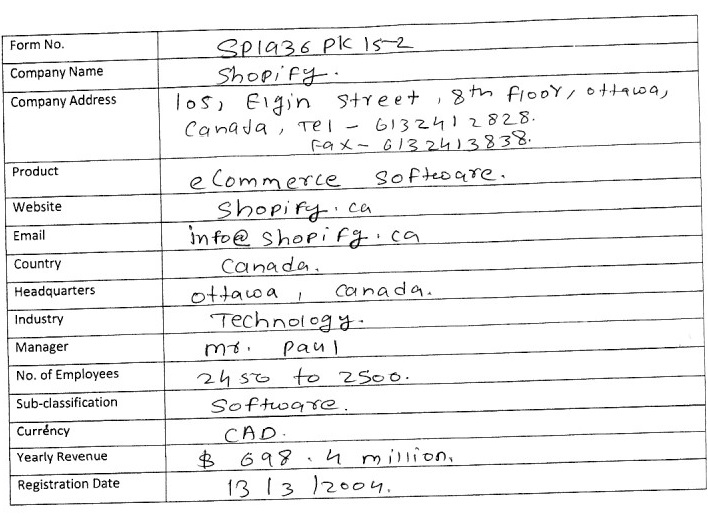 Form No. SP1936 PK 15-2
Company Name Shopify.
Company Address 105, Elgin Street, 8th Floor, Ottawa,
Canada, Tel - 6132412828.
Fax - 6132413838.
Product eCommerce Software.
Website Shopify.ca
Email info@shopify.ca
Country Canada.
Headquarters Ottawa, Canada.
Industry Technology.
Manager Mr. Paul
No. of Employees 2450 to 2500.
Sub-classification Software.
Currency CAD.
Yearly Revenue $ 698.4 million.
Registration Date 13/3/2004.